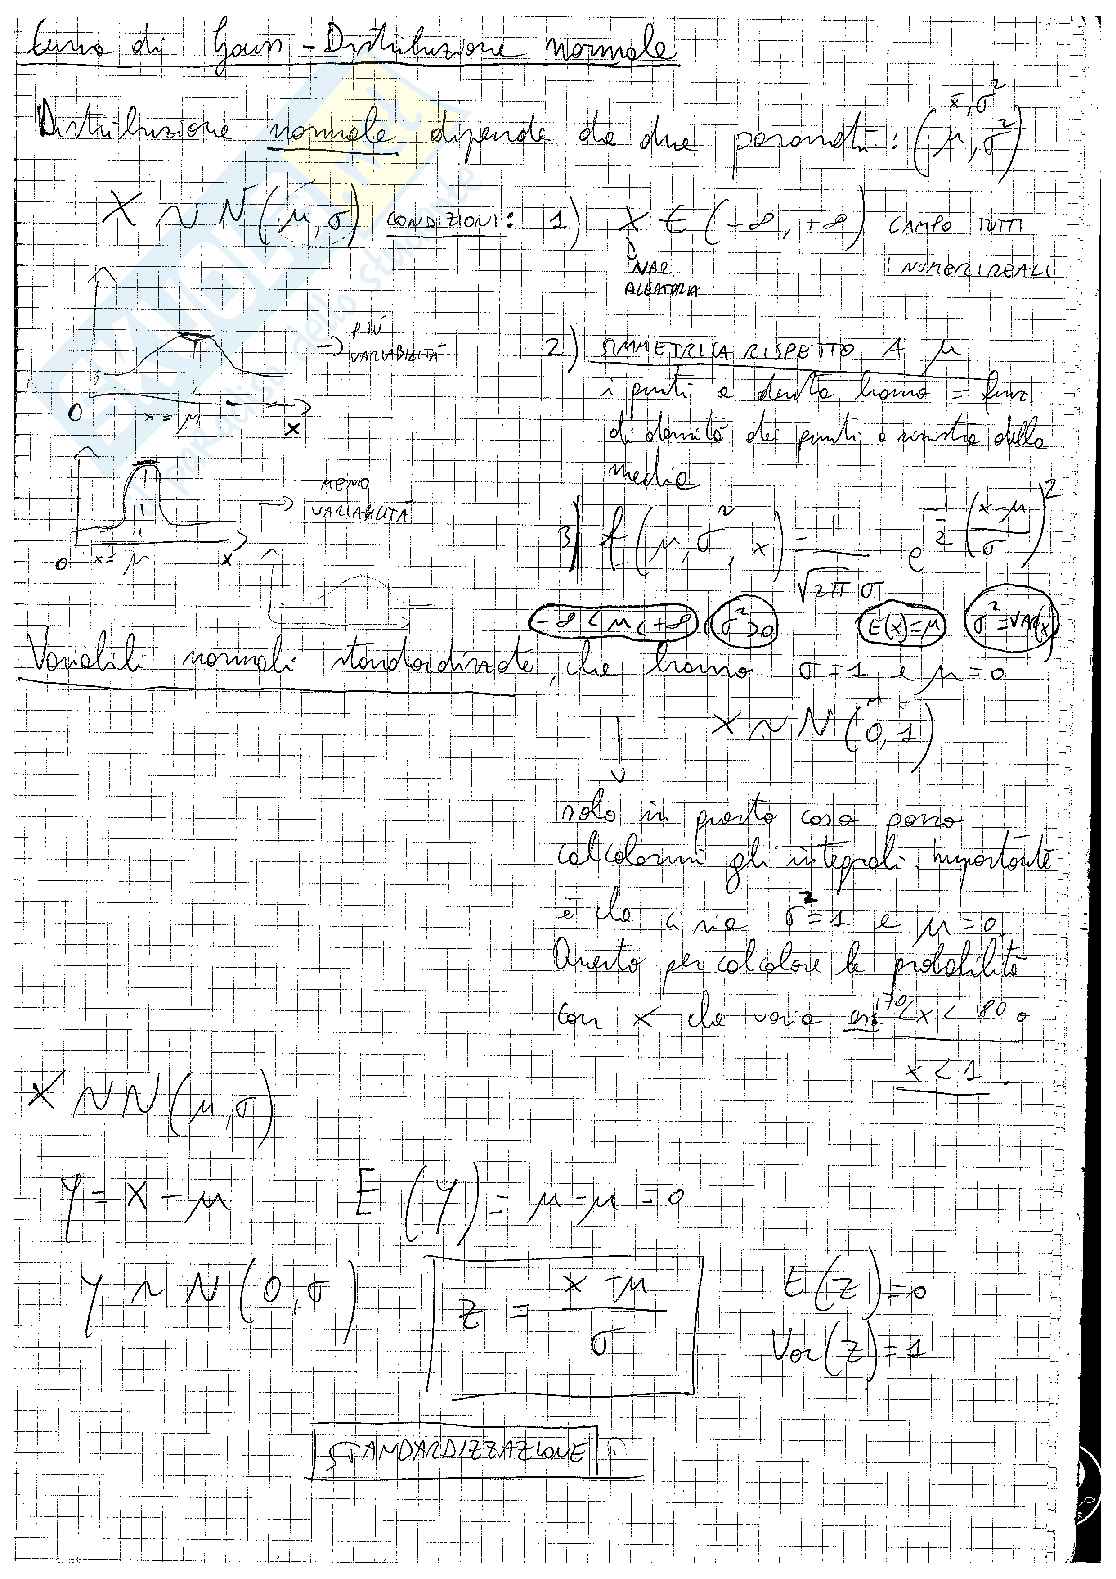 Curva di Gauss - Distribuzione normale
x̄, σ²
Distribuzione normale dipende da due parametri: (μ, σ²)
X ~ N(μ, σ) CONDIZIONI: 1) X ∈ (-∞, +∞) CAMPO TUTTI
I NUMERI REALI
VAR
ALEATORIA
→ PIÙ
VARIABILITÀ
0 x = μ x
2) SIMMETRICA RISPETTO A μ
i punti a destra hanno = funz.
di densità dei punti a sinistra della
media
→ MENO
VARIABILITÀ
0 x = μ x
3) f(μ, σ², x) = 1/(√2π σ) e^-1/2 ((x-μ)/σ)²
-∞ < μ < +∞ σ² > 0 E(x) = μ σ² = VAR(x)
Variabili normali standardizzate, che hanno σ = 1 e μ = 0
X ~ N(0, 1)
solo in questo caso posso
calcolarmi gli integrali, importante
è che ci sia σ² = 1 e μ = 0
Questo per calcolare le probabilità
con x che varia 70 < x < 80 o
x < 1
X ~ N(μ, σ)
Y = X - μ E(Y) = μ - μ = 0
Y ~ N(0, σ) Z = (X - μ)/σ E(Z) = 0
Var(Z) = 1
STANDARDIZZAZIONE